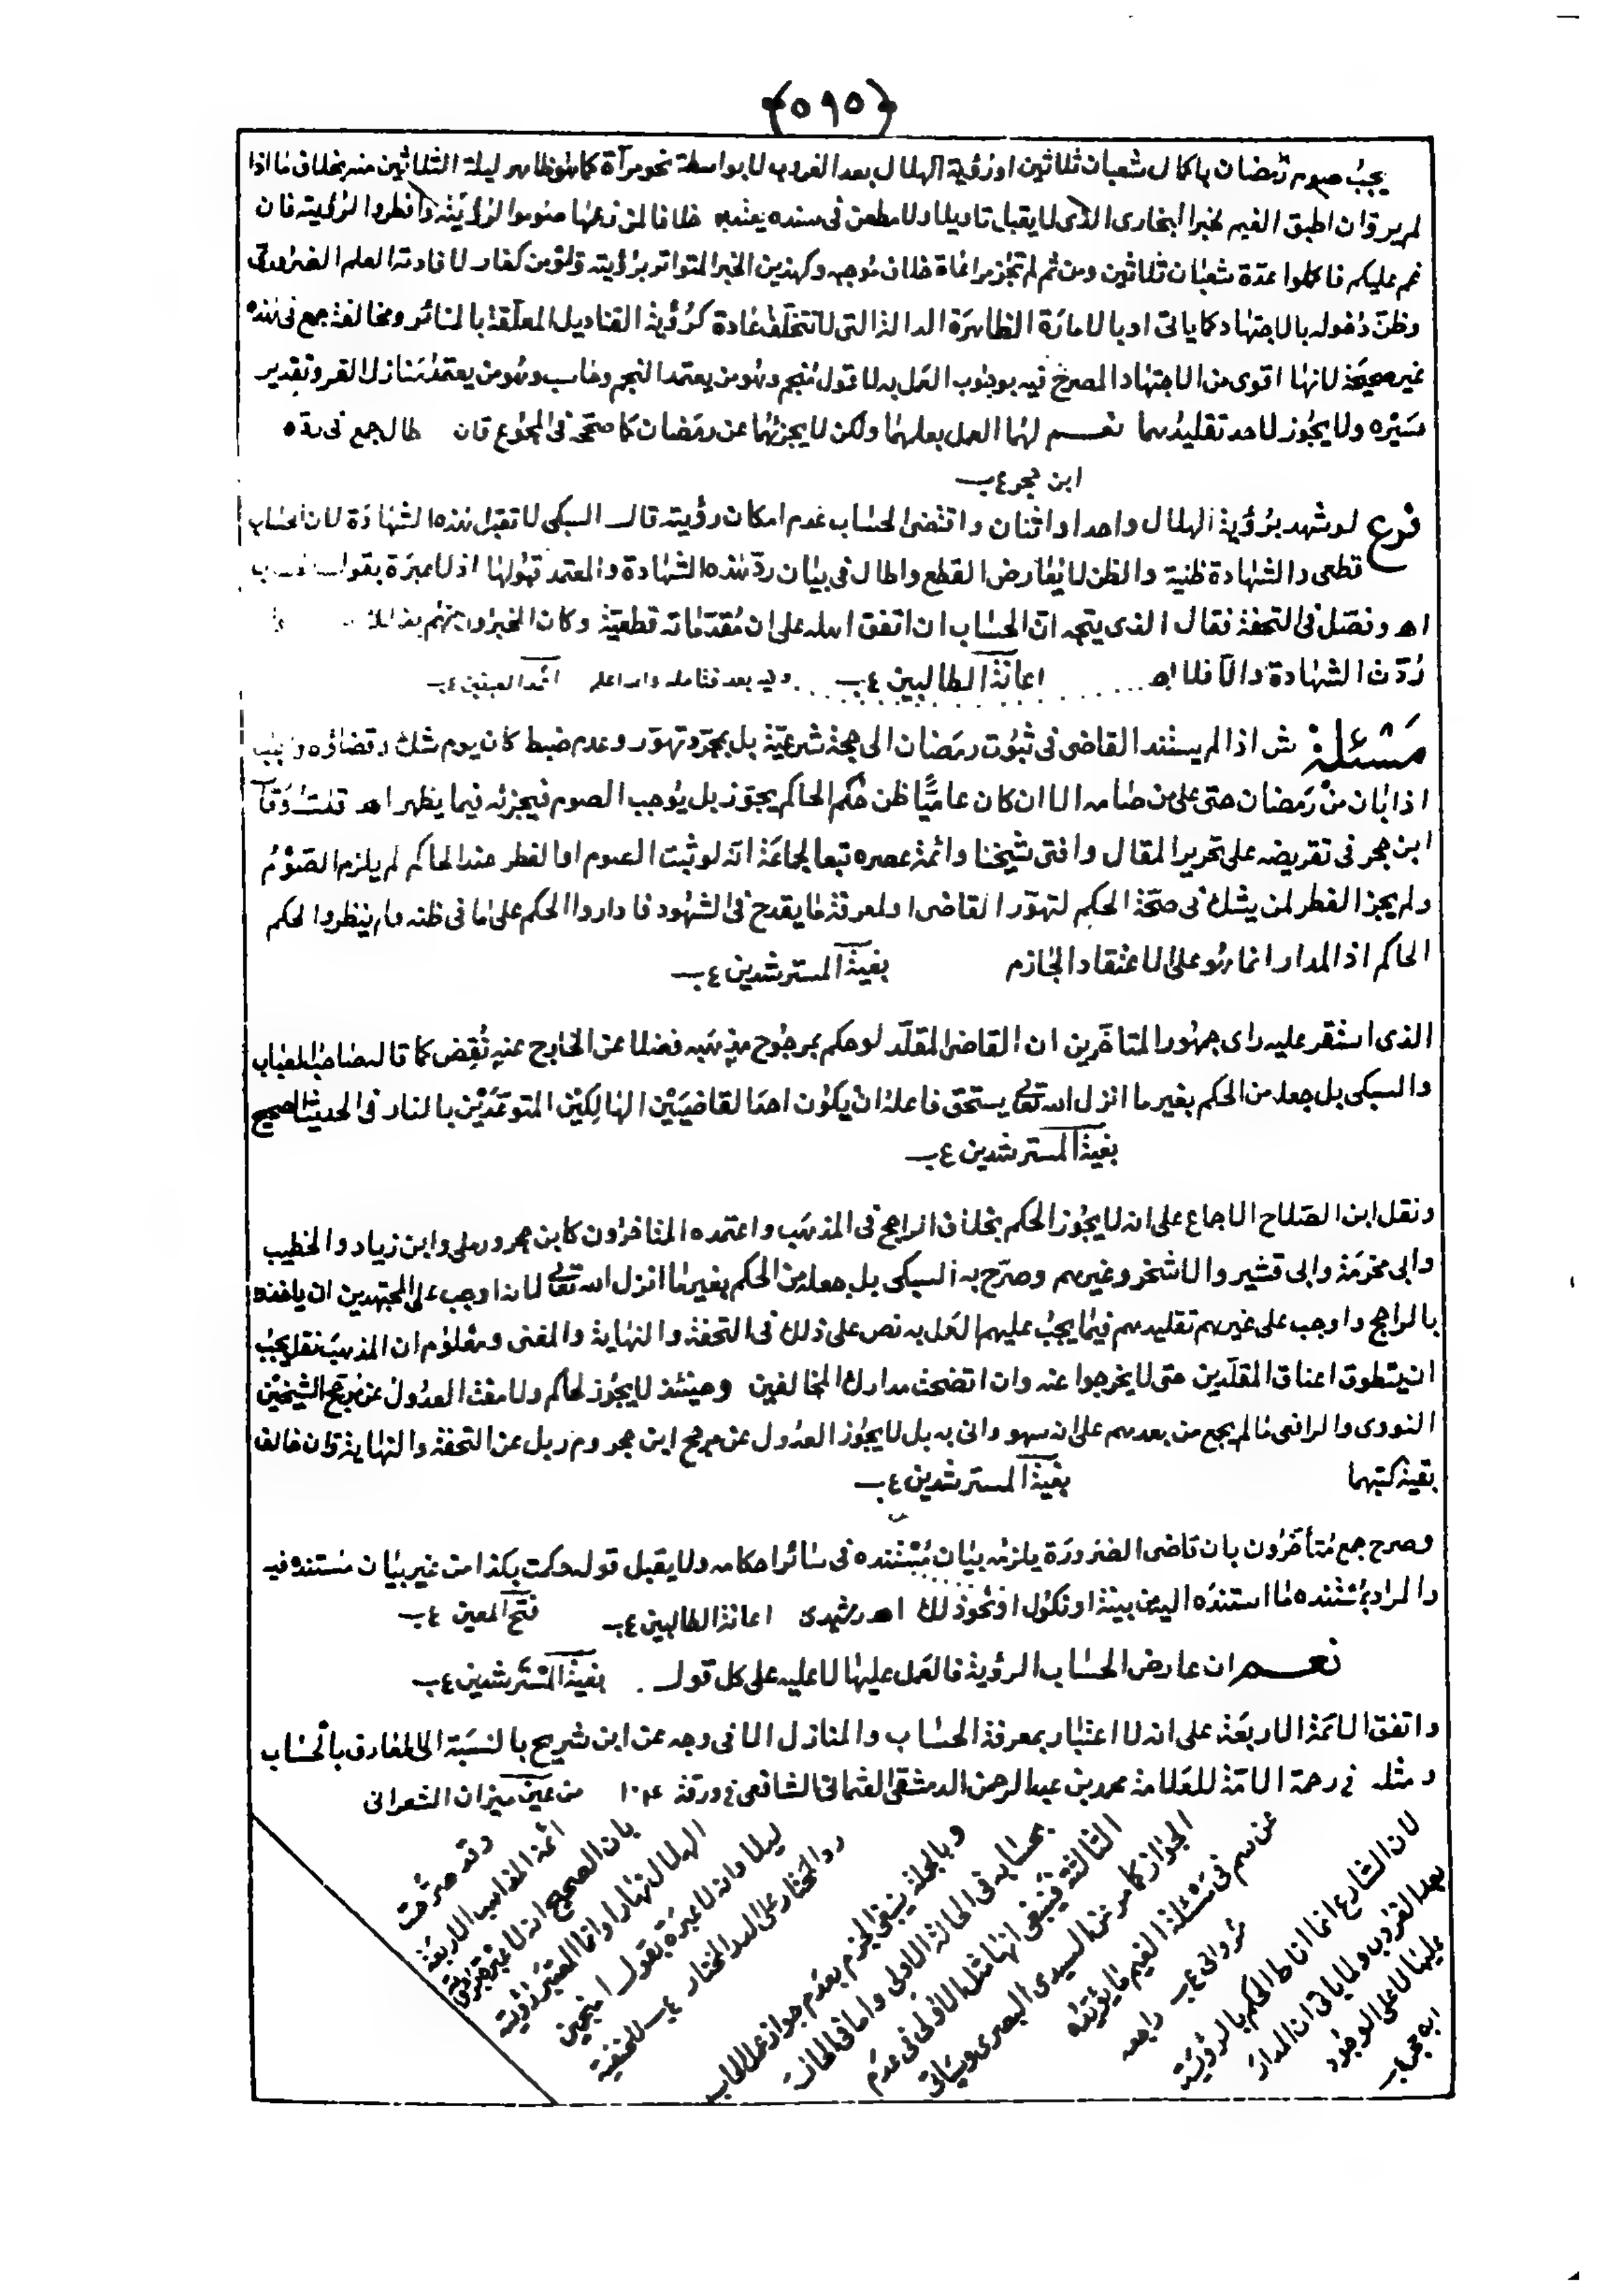 ﴿٥٩٥﴾
يجب صوم رمضان باكمال شعبان ثلاثين او رؤية الهلال بعد الغروب لا بواسطة نحو مرآة كما هو ظاهر ليلة الثلاثين منه بخلاف ما اذا
لم ير وان اطبق الغيم لخبر البخارى الذى لا يقبل تاويلا ولا مطعن فى سنده يعتد به خلافا لمن زعمها صوموا لرؤيته وافطروا لرؤيته فان
غم عليكم فاكملوا عدة شعبان ثلاثين ومن ثم لم تجز مراعاة خلاف موجبه وكهذين الخبر المتواتر برؤيته ولو من كفار لافادته العلم الضرورى
وظن دخوله بالاجتهاد كما ياتى او بالامارة الظاهرة الدالة التى لا تتخلف عادة كرؤية القناديل المعلقة بالمنائر ومخالفة جمع فى هذه
غير صحيحة لانها اقوى من الاجتهاد المصرح فيه بوجوب العمل به لا قول منجم وهو من يعتمد النجم وحاسب وهو من يعتمد منازل القمر وتقدير
سيره ولا يجوز لاحد تقليدهما نعم لهما العمل بعلمهما ولكن لا يجزئهما عن رمضان كما صححه فى المجموع وان اطال جمع فى رده
ابن حجر ٤ب
فرع لو شهد برؤية الهلال واحد او اثنان واقتضى الحساب عدم امكان رؤيته قال السبكى لا تقبل هذه الشهادة لان الحساب
قطعى والشهادة ظنية والظن لا يعارض القطع واطال فى بيان رد هذه الشهادة والمعتمد قبولها اذ لا عبرة بقول الحساب
اه وفصل فى التحفة فقال الذى يتجه ان الحساب ان اتفق اهله على ان مقدماته قطعية وكان المخبرون منهم بذلك
ردت الشهادة والا فلا اه اعانة الطالبين ٤ب وفيه بعد فتامله والله اعلم
مسئلة ش اذا لم يستند القاضى فى ثبوت رمضان الى حجة شرعية بل بمجرد تهور وعدم ضبط كان يوم شك وقضاؤه واجب
اذا بان من رمضان حتى على من صامه الا ان كان عاميا ظن حكم الحاكم يجوز بل يوجب الصوم فيجزئه فيما يظهر اه قلت وقال
ابن حجر فى تقريضه على تحرير المقال وافتى شيخنا وائمة عصره تبعا لجماعة انه لو ثبت الصوم او الفطر عند الحاكم لم يلزم الصوم
ولم يجز الفطر لمن يشك فى صحة الحكم لتهور القاضى او لمعرفة ما يقدح فى الشهود فاداروا الحكم على ما فى ظنه ولم ينظروا لحكم
الحاكم اذ المدار انما هو على الاعتقاد الجازم بغية المسترشدين ٤ب
الذى استقر عليه راى جمهور المتأخرين ان القاضى المقلد لو حكم بمرجوح مذهبه فضلا عن الخارج عنه نقض كما قاله صاحب العباب
والسبكى بل جعله من الحكم بغير ما انزل الله تعالى يستحق فاعله ان يكون احد القاضيين الهالكين المتوعدين بالنار فى الحديث الصحيح
بغية المسترشدين ٤ب
ونقل ابن الصلاح الاجماع على انه لا يجوز الحكم بخلاف الراجح فى المذهب واعتمده المتاخرون كابن حجر ورملى وابن زياد والخطيب
وابى مخرمة وابى قشير والاشخر وغيرهم وصرح به السبكى بل جعله من الحكم بغير ما انزل الله تعالى لان الله اوجب على المجتهدين ان ياخذوا
بالراجح واوجب على غيرهم تقليدهم فيما يجب عليهم العمل به نص على ذلك فى التحفة والنهاية والمغنى ومعلوم ان المذهب نقل يجب
ان يتطوق اعناق المقلدين حتى لا يخرجوا عنه وان اتضحت مدارك المخالفين وحينئذ لا يجوز لحاكم ولا مفت العدول عن مرجح الشيخين
النووى والرافعى ما لم يجمع من بعدهم على انه سهو وانى به بل لا يجوز العدول عن مرجح ابن حجر وم ر بل عن التحفة والنهاية وان خالفا
بقية كتبهما بغية المسترشدين ٤ب
وصرح جمع متأخرون بان قاضى الضرورة يلزمه بيان مستنده فى سائر احكامه ولا يقبل قوله حكمت بكذا من غير بيان مستنده فيه
والمراد بمستنده ما استنده اليه من بينة او نكول او نحو ذلك اه رشيدى اعانة الطالبين ٤ب فتح المعين ٤ب
نعم ان عارض الحساب الرؤية فالعمل عليها لا عليه على كل قول . بغية المسترشدين ٤ب
واتفق الائمة الاربعة على انه لا اعتبار بمعرفة الحساب والمنازل الا فى وجه عن ابن شريح بالنسبة الى العارف بالحساب
ومثله فى رحمة الامة للعلامة محمد بن عبد الرحمن الدمشقى العثمانى الشافعى فى ورقة من عين ميزان الشعرانى
لان الشارع انما اناط الحكم بالرؤية
بعد الغروب ولما ياتى ان المدار
عليها لا على الوجود
ابن حجر ٤ب
عن سم فى مسئلة الغيم ما يؤيده
شروانى ٤ب راجعه
وبالجملة ينبغى الجزم بعدم جواز عمل الحاسب
بحسابه فى الحالة الاولى واما فى الحالة
الثالثة فينبغى انها مثل الاولى فى عدم
الجواز كما مر عن السيدى البصرى وياتى
وقد صرحت
ائمة المذاهب الاربعة
بان الصحيح انه لا عبرة برؤية
الهلال نهارا وانما المعتبر رؤيته
ليلا وانه لا عبرة بقول المنجمين
رد المختار على الدر المختار ٤ب للحنفية